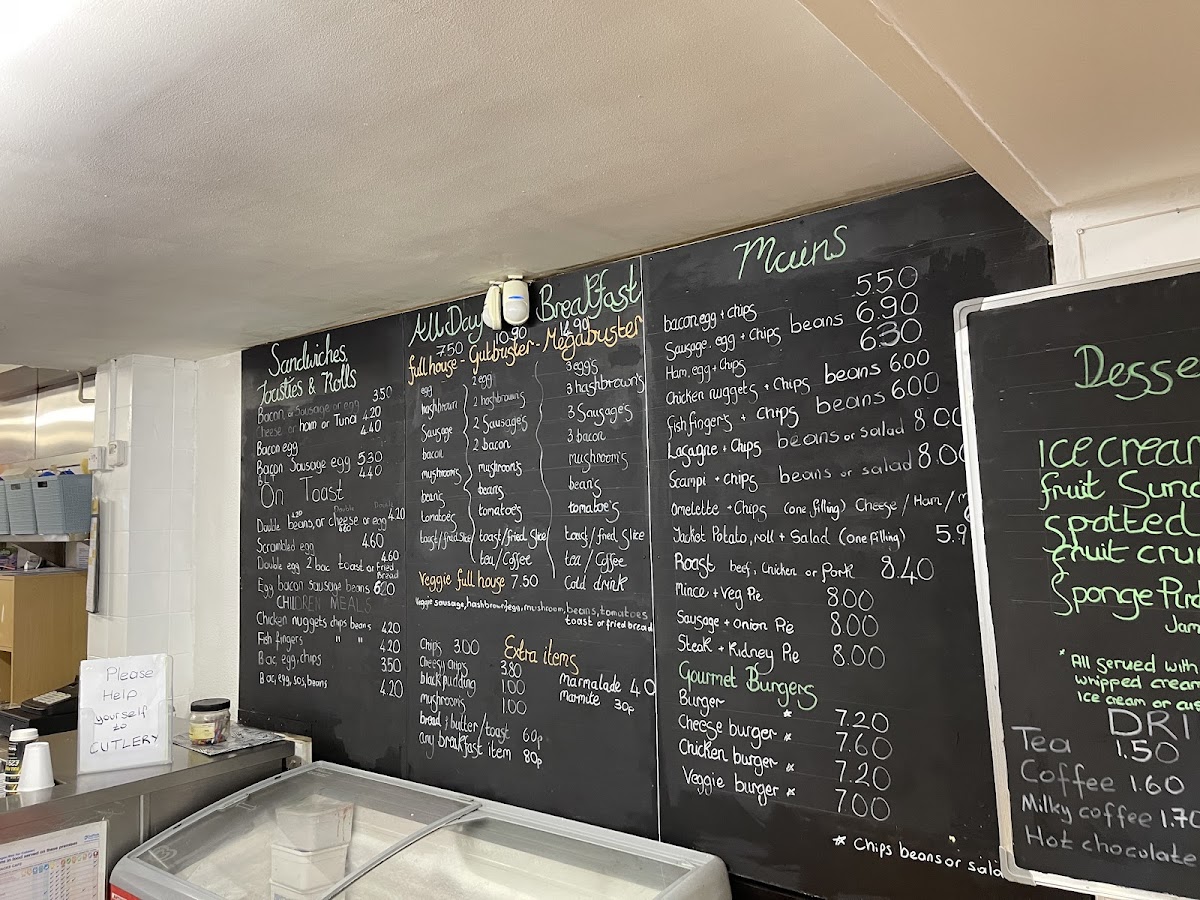 Sandwiches
Toasties & Rolls
Bacon or Sausage or egg 3.50
Cheese or ham or Tuna 4.20
Bacon egg 4.40
Bacon Sausage egg 5.30
4.40
On Toast
Double Double
Double beans, or cheese or egg 4.20
4.20 4.60
Scrambled egg 4.60
Double egg 2 bac toast or Fried Bread 4.60
Egg bacon sausage beans 6.20
CHILDREN MEALS
Chicken nuggets chips beans 4.20
Fish fingers " " 4.20
Bac, egg, chips 3.50
Bac, egg, sos, beans 4.20
All Day Breakfast
7.50 10.90 14.90
full house - Gutbuster - Megabuster
egg 2 egg 3 egg's
hashbrown 2 hashbrown's 3 hashbrown's
Sausage 2 Sausage's 3 Sausage's
bacon 2 bacon 3 bacon
mushroom's mushroom's mushroom's
bean's beans bean's
tomatoe's tomatoe's tomatoe's
toast/fried slice toast/fried slice toast/fried slice
tea/Coffee tea/Coffee
Cold drink
Veggie full house 7.50
Veggie sausage, hashbrown, egg, mushroom, beans, tomatoes
toast or fried bread
Chips 3.00
Cheesy chips 3.80
black pudding 1.00
mushrooms 1.00
bread & butter/toast 60p
any breakfast item 80p
Extra items
Marmalade 40
Marmite 30p
Mains
bacon, egg + chips 5.50
Sausage, egg + Chips beans 6.90
Ham, egg + Chips 6.30
Chicken nuggets + Chips beans 6.00
fish fingers + Chips beans 6.00
Lasagne + Chips beans or salad 8.00
Scampi + chips beans or salad 8.00
Omelette + Chips (one filling) Cheese / Ham /
Jacket Potato, roll + Salad (one filling) 5.9
Roast beef, Chicken or Pork 8.40
Mince + Veg Pie 8.00
Sausage + Onion Pie 8.00
Steak + Kidney Pie 8.00
Gourmet Burgers
Burger * 7.20
Cheese burger * 7.60
Chicken burger * 7.20
Veggie burger * 7.00
* Chips beans or sala
Desse
Ice cream
fruit Sund
spotted
fruit crum
Sponge Pud
Jam
* All served with
whipped cream
Ice cream or cus
DRI
Tea 1.50
Coffee 1.60
Milky coffee 1.70
Hot chocolate
Please
Help
yourself
to
CUTLERY